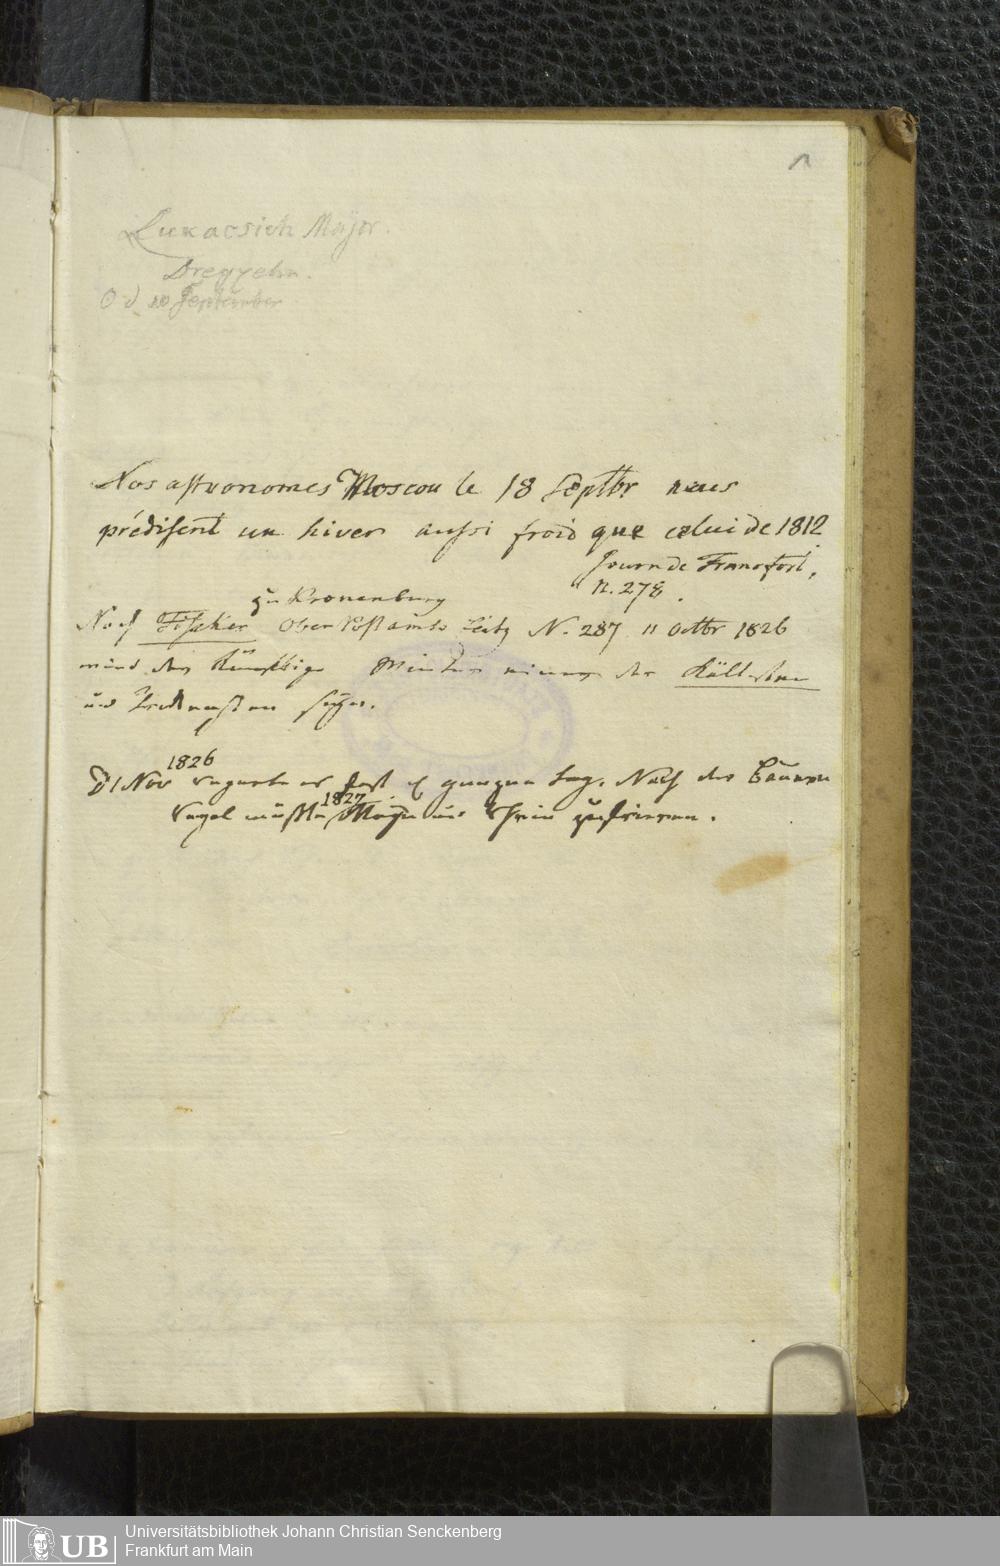 1
Lukacsich Major.
Dreyzehn.
O d 10 September
Nos astronomes Moscou le 18 Septbr nous
prédisent un hiver aussi froid que celui de 1812
Journ de Francfort,
n. 278.
zu Kronenburg
Nach Fischer Ober Postamts Zeitg N. 287 11 Octbr 1826
wird der künftige Winter einer der Kältesten
und seyn.
1826
D 1 Nov regnete es fast den ganzen Tag. Nach der Bauern
1827
Regel müßte im Rhein zufrieren.
UB
Universitätsbibliothek Johann Christian Senckenberg
Frankfurt am Main